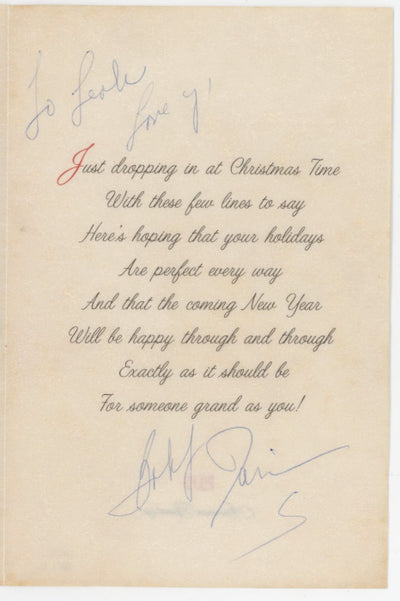 To Leah
Love ya!
Just dropping in at Christmas Time
With these few lines to say
Here's hoping that your holidays
Are perfect every way
And that the coming New Year
Will be happy through and through
Exactly as it should be
For someone grand as you!
Bobby Darin